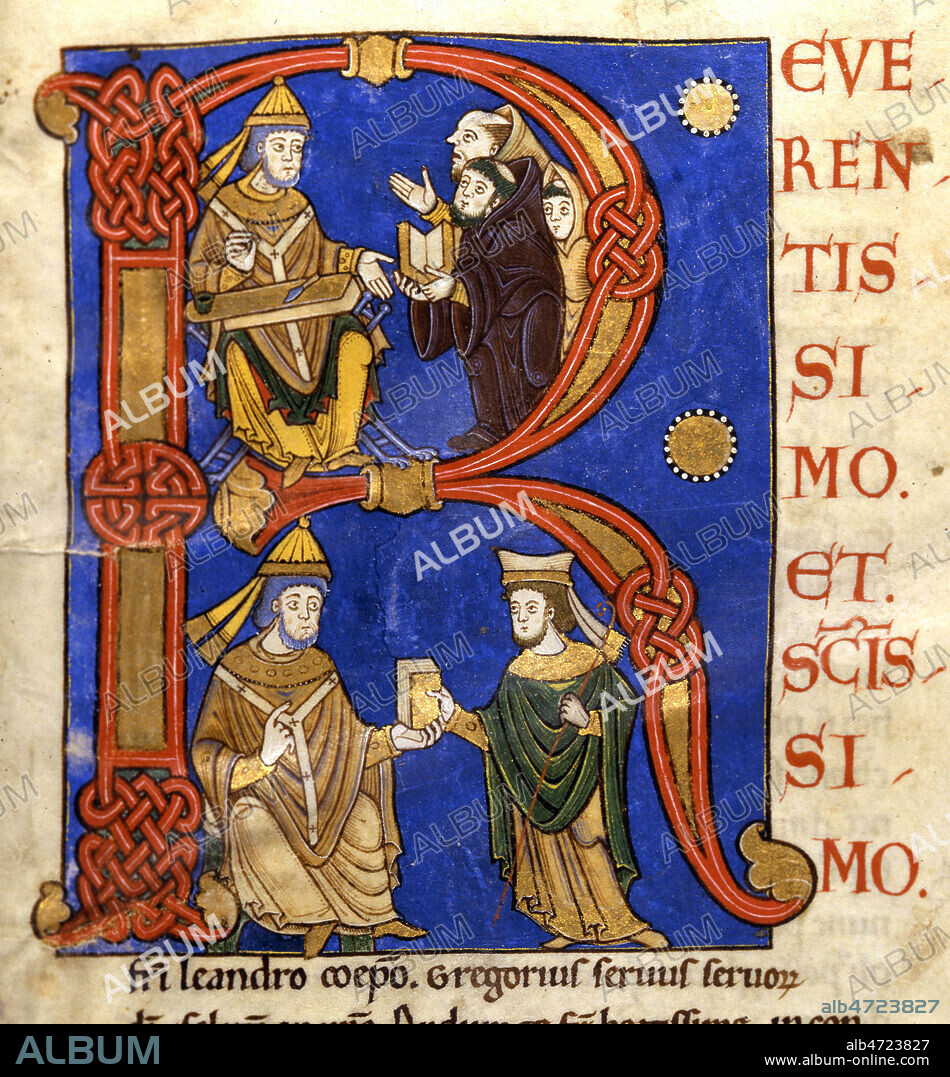 EVE-
REN-
TIS
SI-
MO.
ET.
SC̄IS
SI-
MO.
fr̄i leandro coep̄o. Gregorius seruus seruoꝝ
alb4723827
ALBUM
alb4723827
www.album-online.com